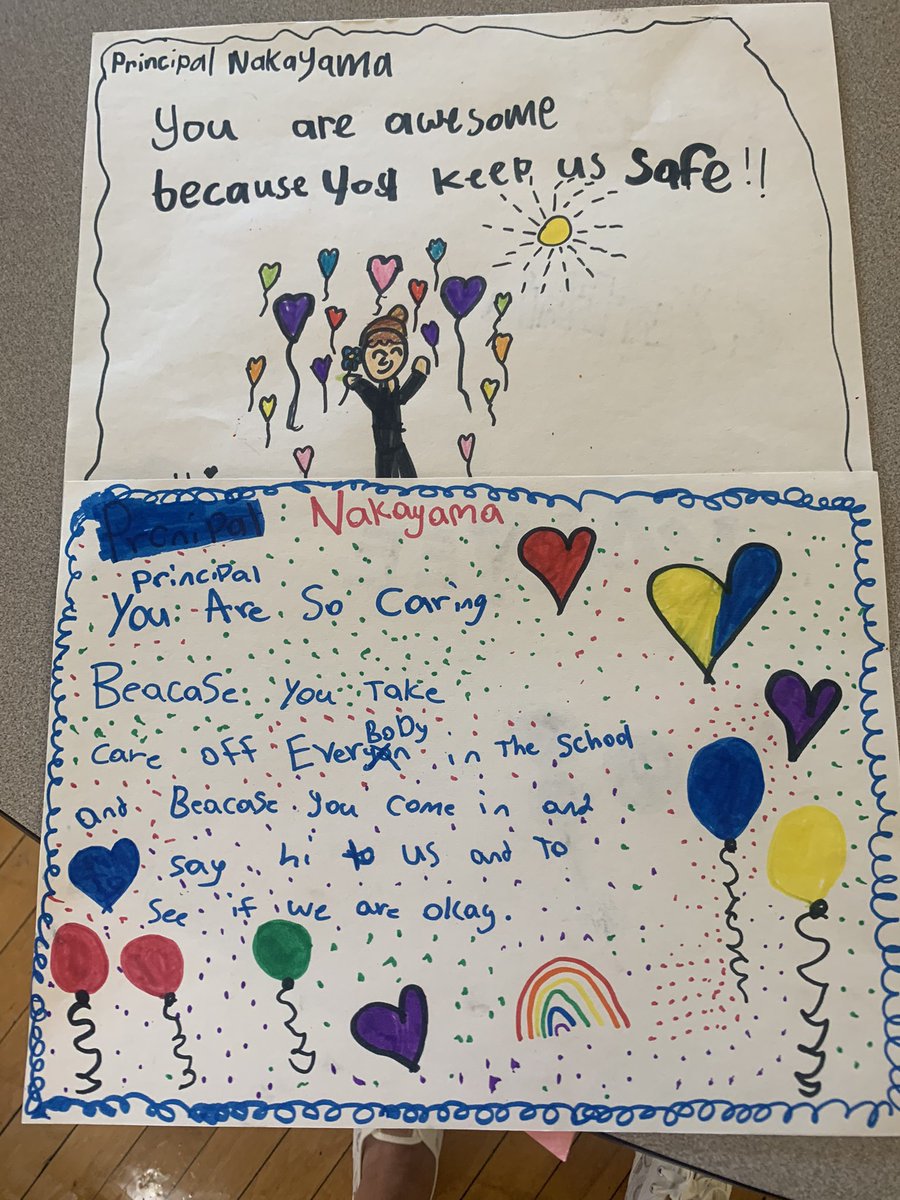 Principal Nakayama
You are awesome
because you keep us safe!!
Prcnipal Nakayama
principal
You Are So Caring
Beacase you Take
care off EveryBoDy in The School
and Beacase you come in and
say hi to us and To
See if we are okay.